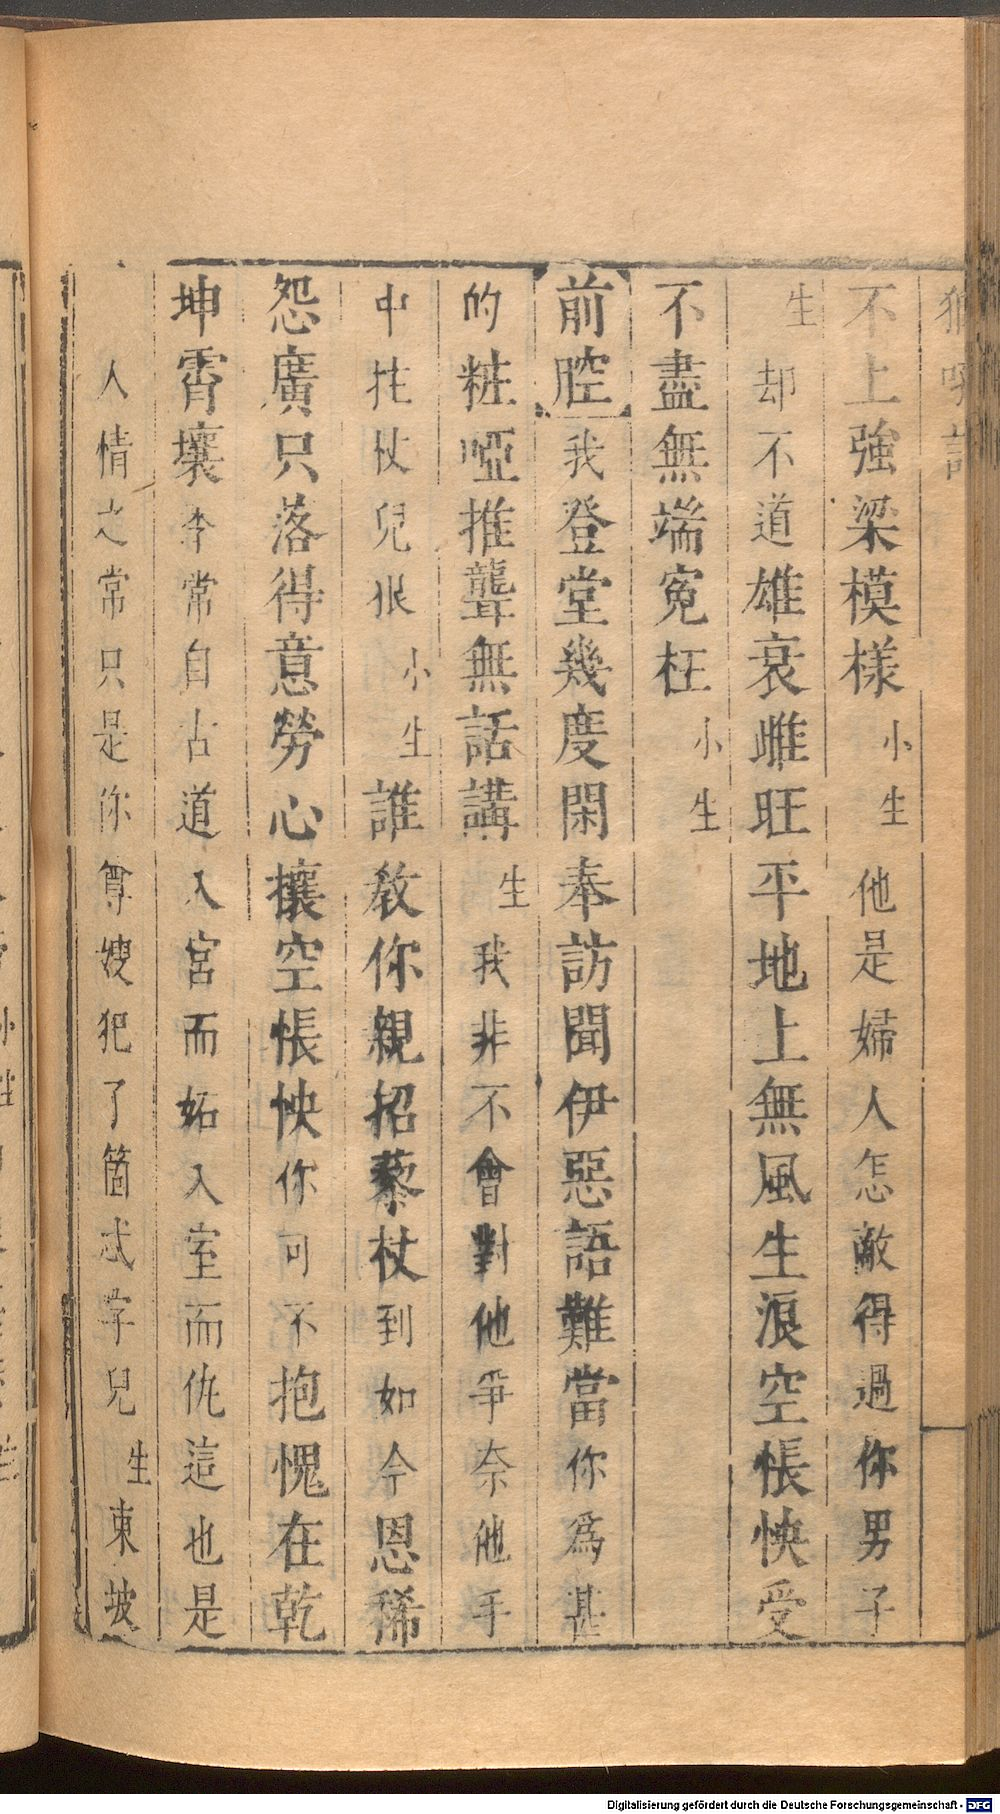 獅吼記
不上強梁模樣小生他是婦人怎敵得過你男子
生却不道雄衰雌旺平地上無風生浪空悵怏受
不盡無端寃枉小生
前腔我登堂幾度閑奉訪聞伊惡語難當你為甚
的粧啞推聾無話講生我非不會對他爭奈他手
中拄杖兒狠小生誰教你親招藜杖到如今恩稀
怨廣只落得意勞心攘空悵怏你可不抱愧在乾
坤霄壤李常自古道入宮而妬入室而仇這也是
人情之常只是你尊嫂犯了箇忒字兒生東坡
Digitalisierung gefördert durch die Deutsche Forschungsgemeinschaft - DFG